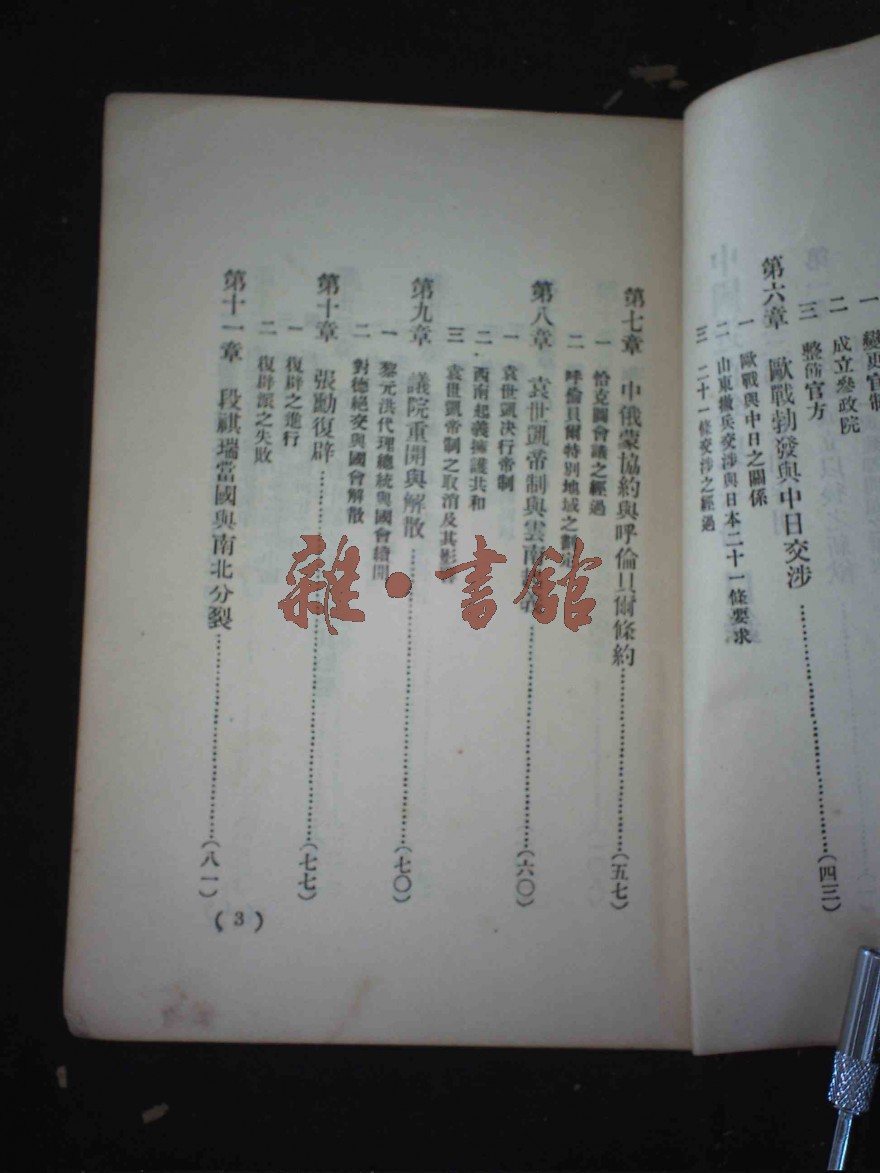 一 變更官制
二 成立參政院
三 整飭官方
第六章 歐戰勃發與中日交涉……………………(四三)
一 歐戰與中日之關係
二 山東撤兵交涉與日本二十一條要求
三 二十一條交涉之經過
第七章 中俄蒙協約與呼倫貝爾條約……………………(五七)
一 恰克圖會議之經過
二 呼倫貝爾特別地域之劃定
第八章 袁世凱帝制與雲南……………………(六〇)
一 袁世凱決行帝制
二 西南起義擁護共和
三 袁世凱帝制之取消及其影響
第九章 議院重開與解散……………………(七〇)
一 黎元洪代理總統與國會續開
二 對德絕交與國會解散
第十章 張勳復辟……………………(七七)
一 復辟之進行
二 復辟派之失敗
第十一章 段祺瑞當國與南北分裂……………………(八一)
(3)
雜·書館